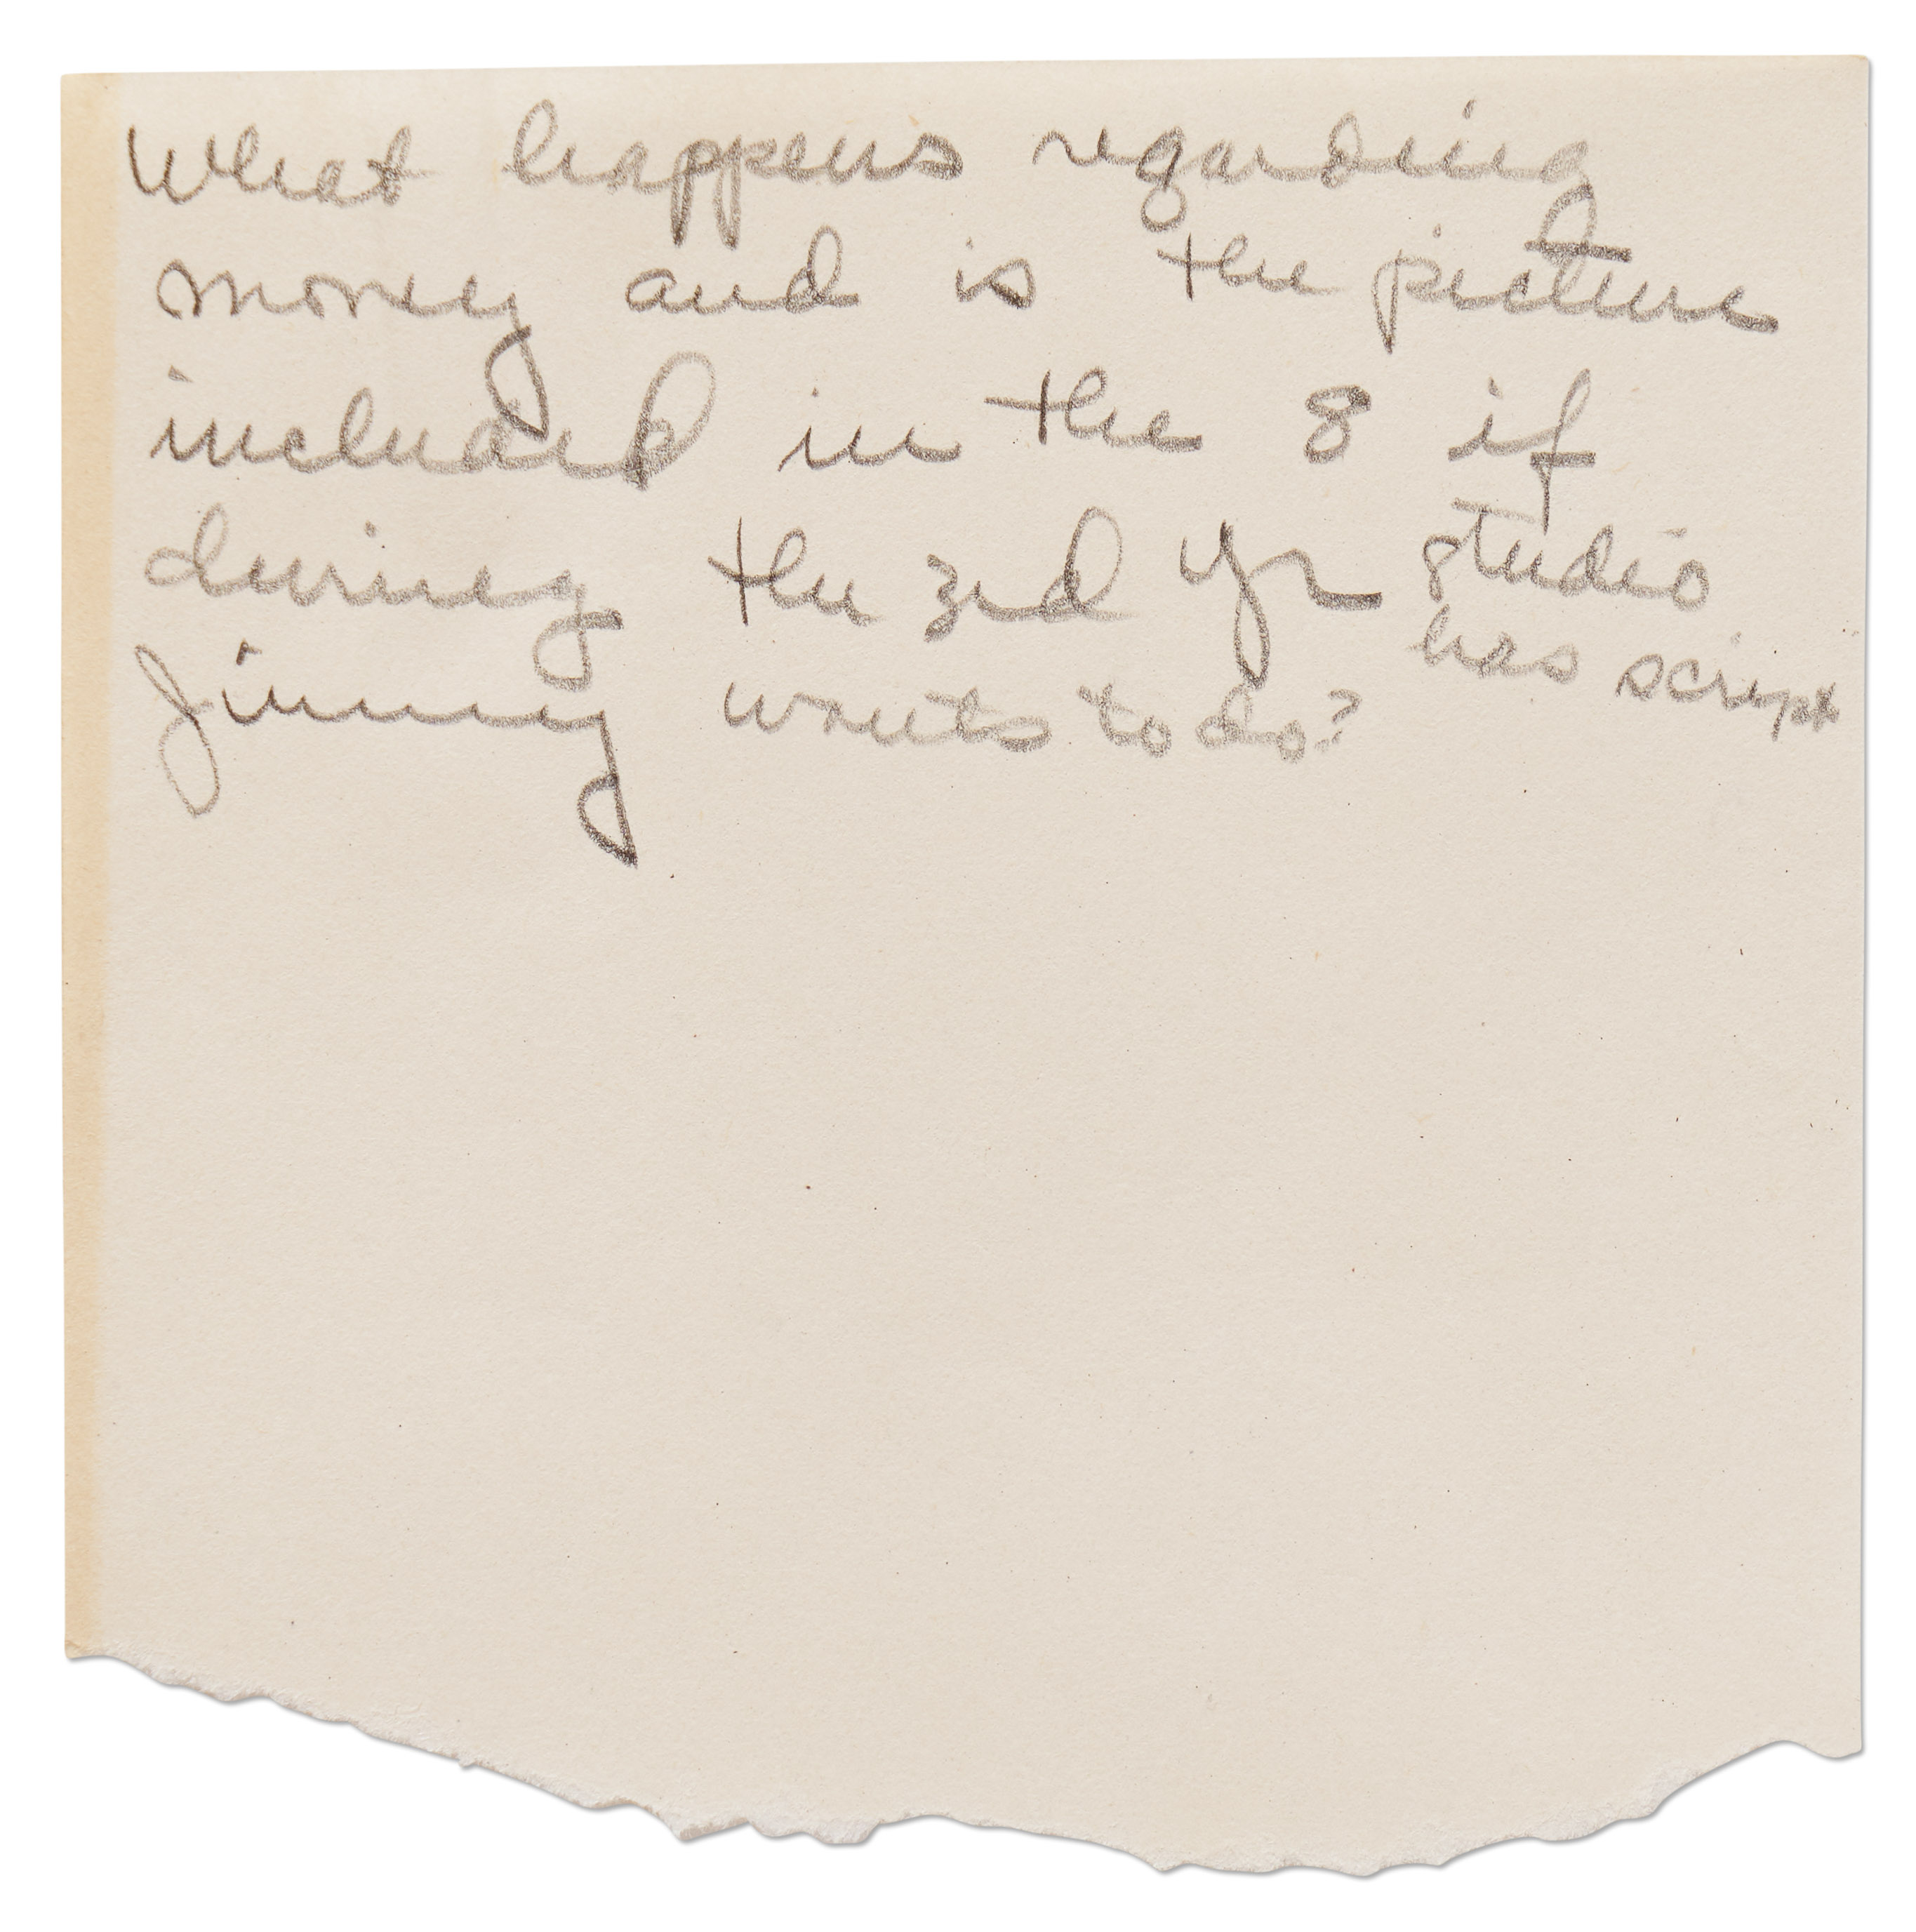 What happens regarding
money and is the picture
included in the 8 if
during the 3rd yr studio
has script
Jimmy wants to do?